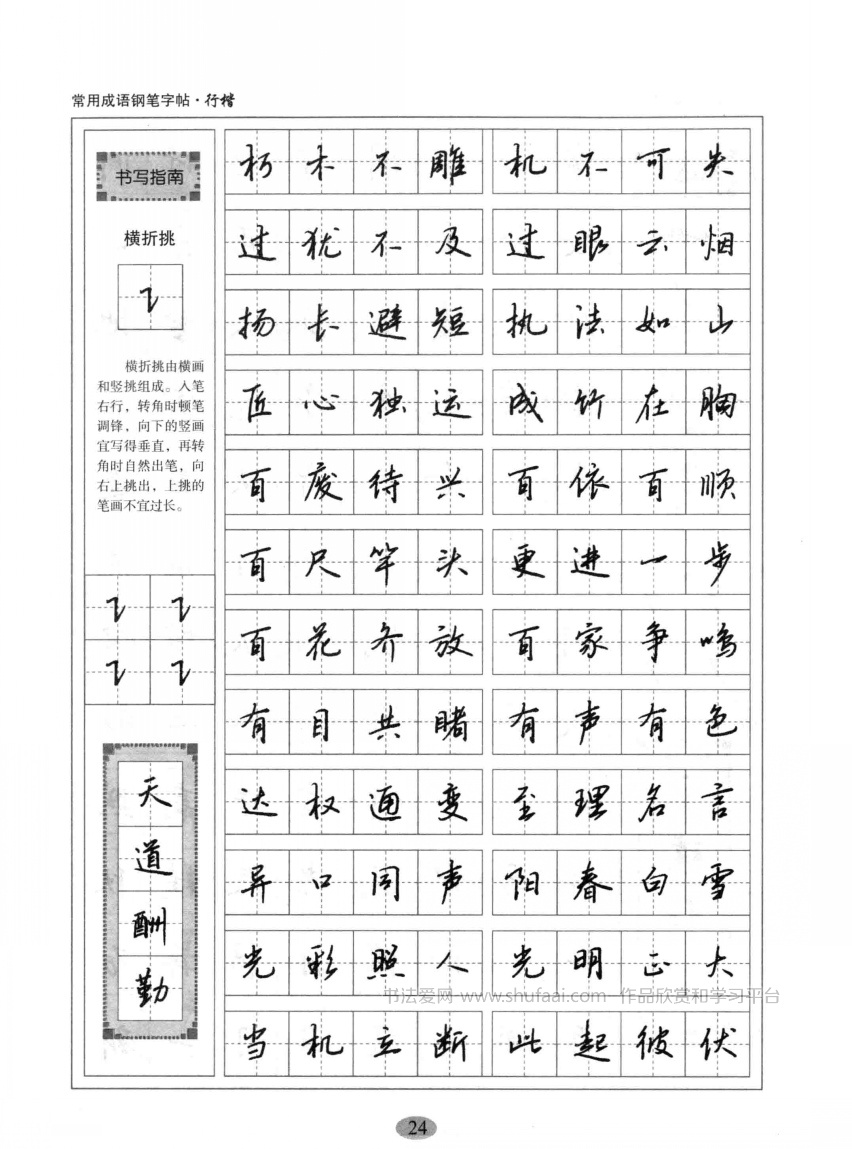 常用成语钢笔字帖·行楷
书写指南
横折挑
㇊
横折挑由横画
和竖挑组成。入笔
右行，转角时顿笔
调锋，向下的竖画
宜写得垂直，再转
角时自然出笔，向
右上挑出，上挑的
笔画不宜过长。
㇊ ㇊
㇊ ㇊
天
道
酬
勤
朽木不雕 机不可失
过犹不及 过眼云烟
扬长避短 执法如山
匠心独运 成竹在胸
百废待兴 百依百顺
百尺竿头 更进一步
百花齐放 百家争鸣
有目共睹 有声有色
达权通变 至理名言
异口同声 阳春白雪
光彩照人 光明正大
书法爱网 www.shufaai.com 作品欣赏和学习平台
当机立断 此起彼伏
24